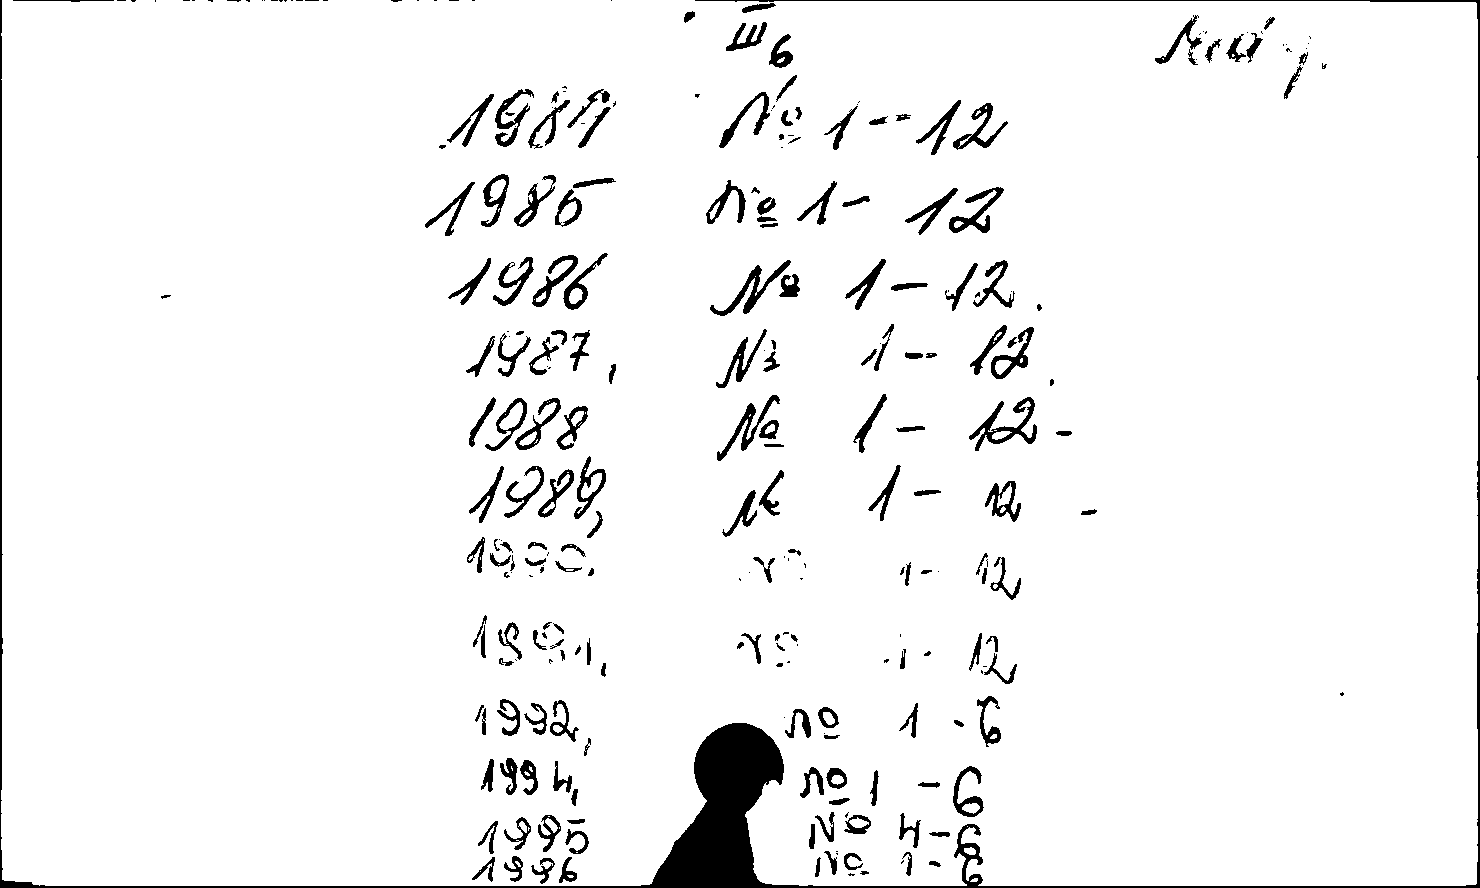 III 6
1984 № 1 - 12
1985 № 1 - 12
1986 № 1 - 12.
1987, № 1 - 12.
1988 № 1 - 12 -
1989, № 1 - 12 -
1990. № 1 - 12
1991, № 1 - 12
1992, № 1 - 6
1994, № 1 - 6
1995 № 4 - 6
1996 № 1 - 6